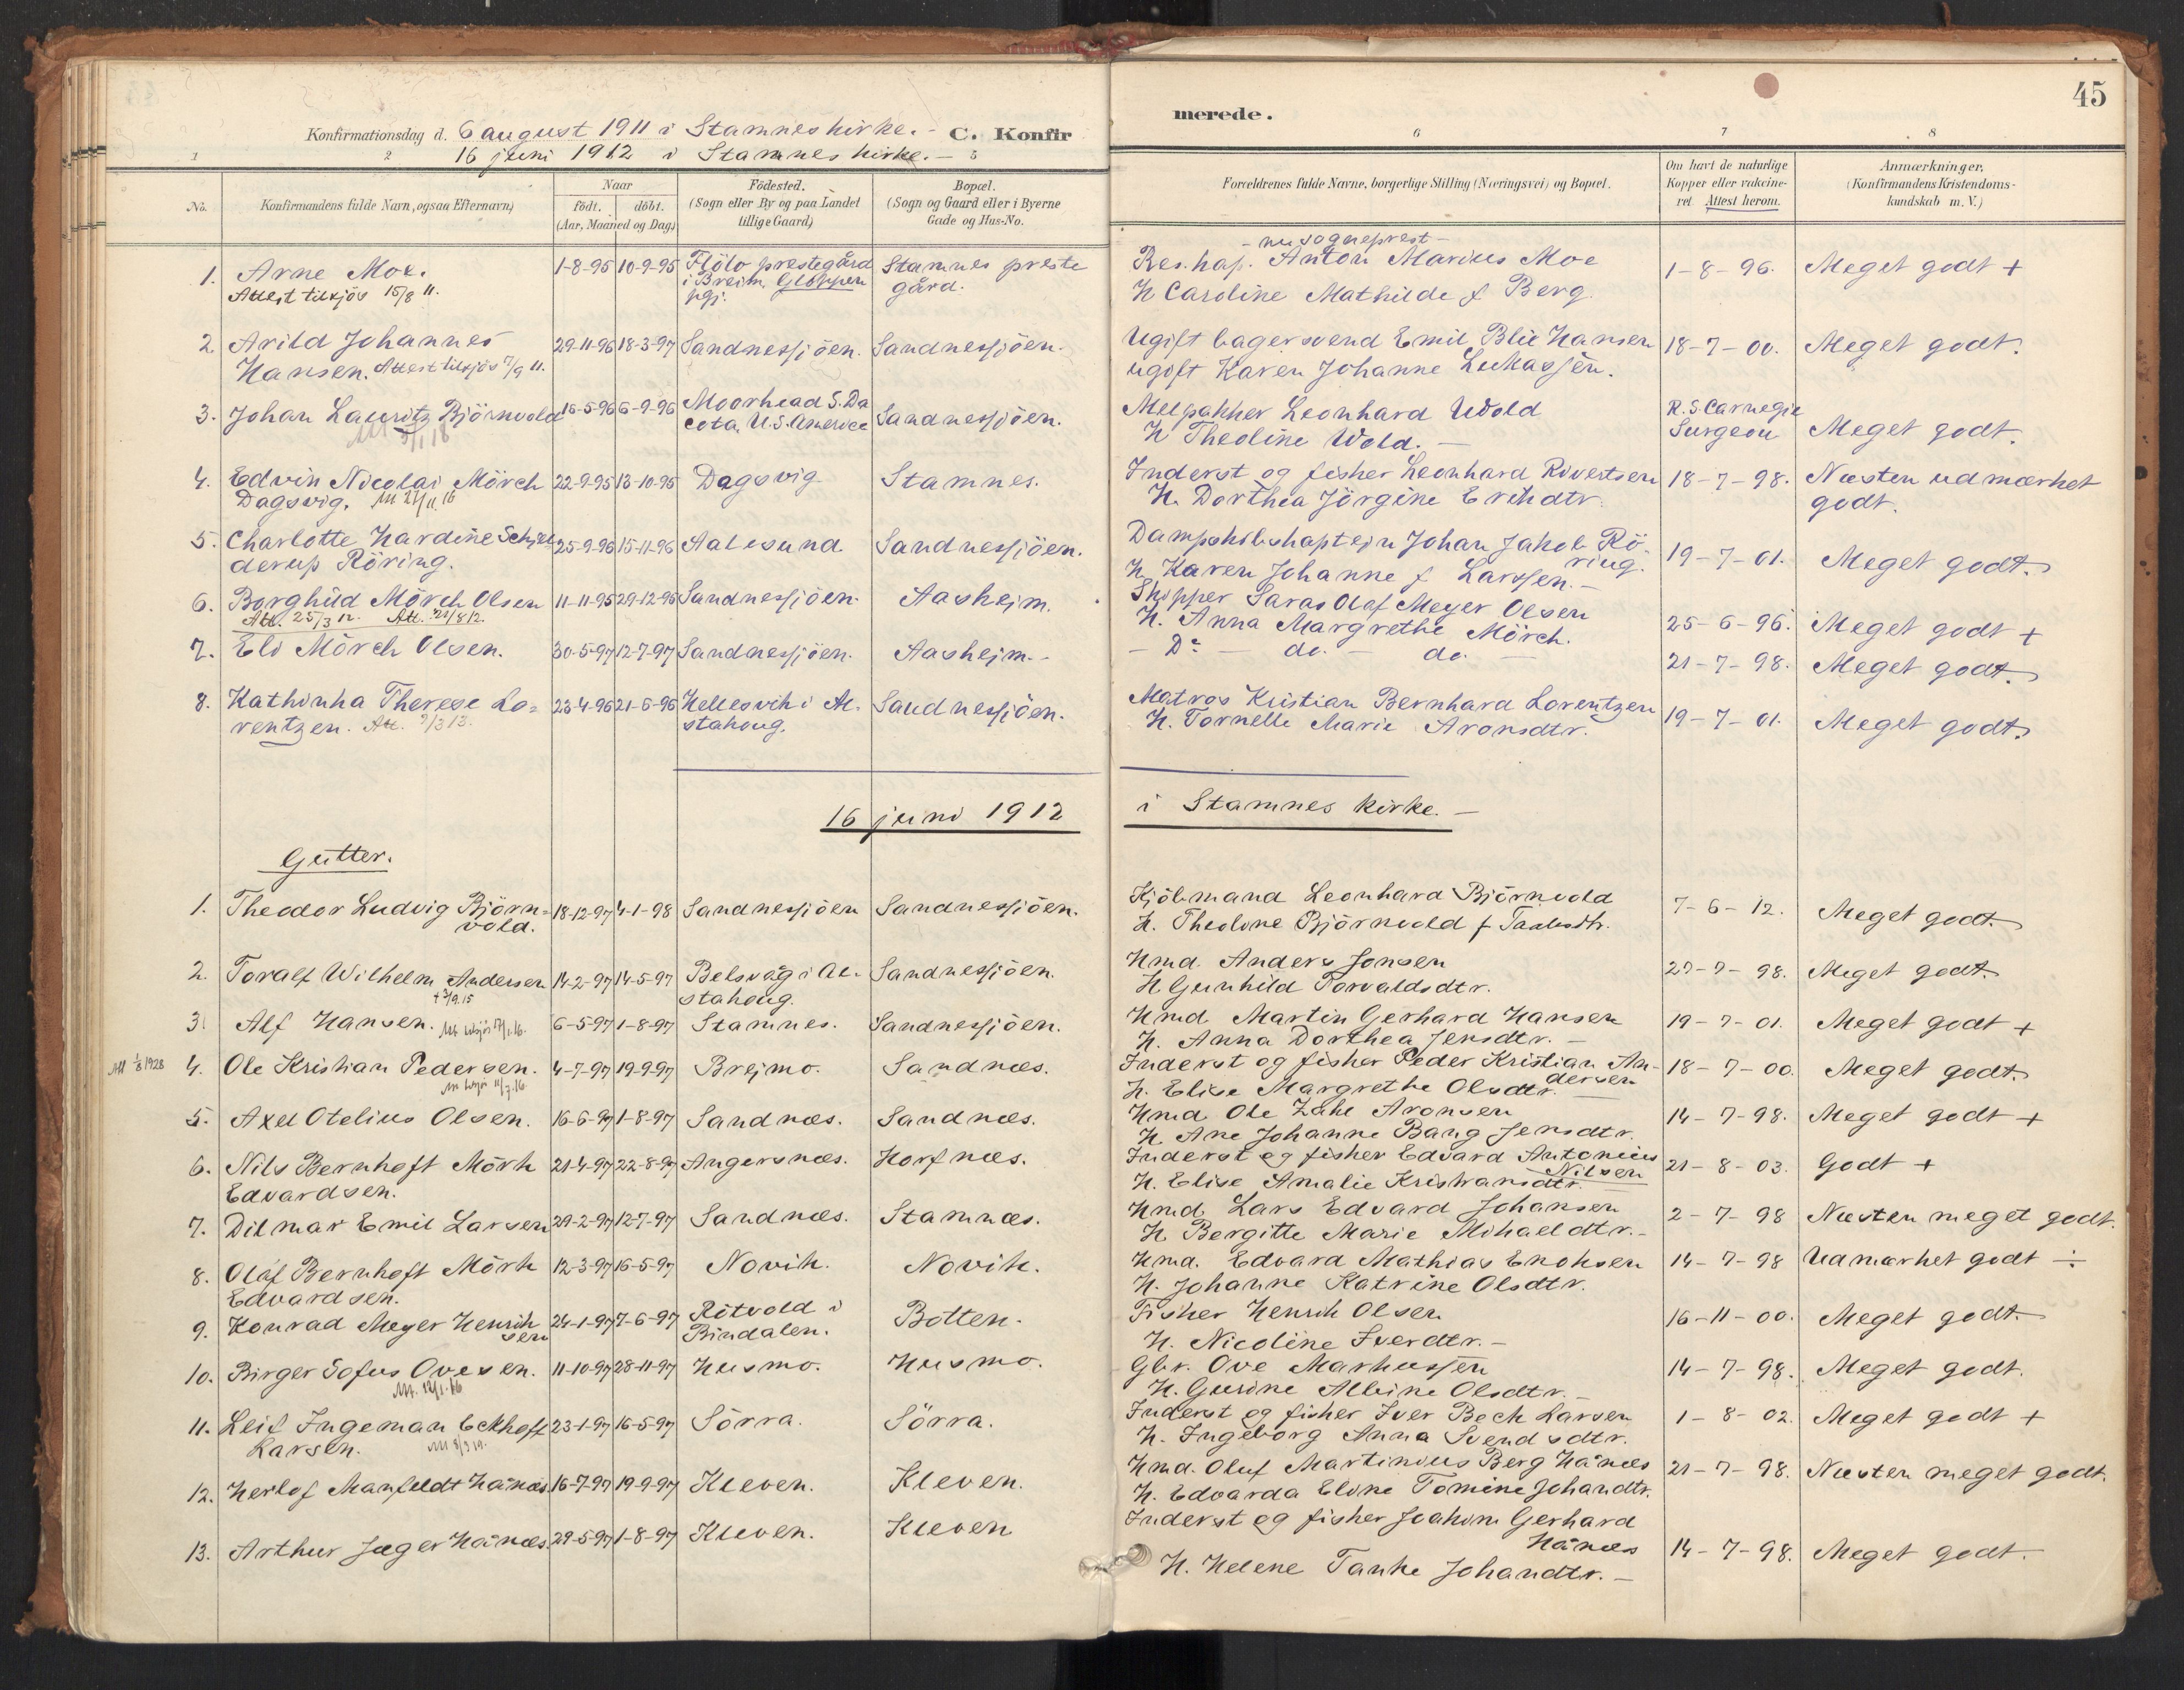 45
Konfirmationsdag d. 6 august 1911 i Stamnes kirke. - C. Konfir
merede.
16 juni 1912 i Stamnes kirke. -
1 2 3 6 7 8
No. Konfirmandens fulde Navn, ogsaa Efternavn) Naar födt. döbt. (Aar, Maaned og Dag) Födested. (Sogn eller By og paa Landet tillige Gaard) Bopæl. (Sogn og Gaard eller i Byerne Gade og Hus-No. Forældrenes fulde Navne, borgerlige Stilling (Næringsvei) og Bopæl. Om havt de naturlige Kopper eller vakcineret. Attest herom. Anmærkninger, (Konfirmandens Kristendomskundskab m.V.)
- nu sogneprest -
1. Arne Moe. 1-8-95 10-9-95 Flölo prestegård Stamnes preste Res. kap. Anton Marius Moe 1-8-96. Meget godt +
Attest tilsjös 15/8 11. i Breim, Gloppen gård. H Caroline Mathilde f Berg
pgj.
2. Arild Johannes 29-11-96 18-3-97 Sandnessjöen. Sandnessjöen. Ugift bagersvend Emil Blix Hansen 18-7-00. Meget godt.
Hansen. Attest tilsjös 7/9 11. ugift Karen Johanne Lukassen.
3. Johan Lauritz Björnvold 16-5-96 6-9-96 Moorhead S. Da Sandnessjöen. Melpakker Leonhard Wold R.S. Carnegie Meget godt.
cota, U.S. America H Theoline Wold. - Surgeon
4. Edvin Nicolai Mörch 22-9-95 13-10-95 Dagsvig Stamnes. Inderst og fisker Leonhard Rivertsen 18-7-98. Næsten udmærket
Dagsvig. H. Dorthea Jörgine Erikdtr. godt.
5. Charlotte Hardine Schjel 25-9-96 15-11-96 Aalesund. Sandnessjöen. Dampskibskaptejn Johan Jakob Rö- 19-7-01. Meget godt.
derup Röring. ring.
H. Karen Johanne f Larssen. -
6. Borghild Mörch Olsen 11-11-95 29-12-95 Sandnessjöen. Aasheim. Skipper Saras Olaf Meyer Olsen 25-6-96. Meget godt +
Att. 25/3 12. Att. 21/8 12. H. Anna Margrethe Mörch.
7. Eli Mörch Olsen. 30-5-97 12-7-97 Sandnessjöen. Aasheim. - - Do - do. - do. - 21-7-98. Meget godt.
8. Kathinka Therese Lo= 23-4-96 21-6-96 Hellesvik i Al- Sandnessjöen. Matros Kristian Bernhard Lorentzen 19-7-01. Meget godt.
rentzen. Att. 7/3 13. stahoug. H. Tornelle Marie Aronsdtr.
16 juni 1912 i Stamnes kirke. -
Gutter.
1. Theodor Ludvig Björn= 18-12-97 4-1-98 Sandnessjöen Sandnessjöen. Kjöbmand Leonhard Björnvold 7-6-12. Meget godt.
vold. H. Theoline Björnvold f
2. Toralf Wilhelm Andersen 14-2-97 14-5-97 Belsvåg i Al- Sandnessjöen. Hmd. Anders Jonsen 27-7-98. Meget godt.
stahoug. H Gunhild Torvaldsdtr.
3. Alf Hansen. 6-5-97 1-8-97 Stamnes. Sandnessjöen. Hmd. Martin Gerhard Hansen 19-7-01. Meget godt +
H. Anna Dorthea Jensdtr. -
4. Ole Kristian Pedersen. 4-7-97 19-9-97 Brejmo. Sandnæs. Inderst og fisker Peder Kristian An- 18-7-00. Meget godt.
dersen
H. Elise Margrethe Olsdtr.
5. Axel Otelius Olsen. 16-6-97 1-8-97 Sandnæs. Sandnæs. Hmd. Ole Zahl Aronsen 14-7-98. Meget godt +
H. Ane Johanne Bang Jensdtr.
6. Nils Bernhoft Mörk 21-4-97 22-8-97 Angersnæs. Horfnæs. Inderst og fisker Edvard Antonius 21-8-03. Godt +
Edvardsen. Nilsen
H. Elise Amalie Kristiansdtr.
7. Dilmar Emil Larsen 29-2-97 12-7-97 Sandnæs. Stamnæs. Hmd. Lars Edvard Johansen 2-7-98 Næsten meget godt.
H. Bergitte Marie Mikaeldtr. -
8. Olaf Bernhoft Mörk 12-3-97 16-5-97 Novik. Novik. Hmd. Edvard Mathias Enoksen 14-7-98 Udmærket godt ÷
Edvardsen. H. Johanne Katrine Olsdtr.
9. Konrad Meyer Henrik 24-1-97 7-6-97 Rötvold i Botten. Fisker Henrik Olsen 16-11-00. Meget godt.
sen Bindalen. H. Nicoline Iverdtr. -
10. Birger Sofus Ovesen. 11-10-97 28-11-97 Husmo. Husmo. Gbr. Ove Markussen 14-7-98. Meget godt.
H. Gurine Albine Olsdtr. -
11. Leif Ingeman Eckhoff 23-1-97 16-5-97 Sörra. Sörra. Inderst og fisker Iver Bech Larsen 1-8-02. Meget godt +
Larsen. H. Ingeborg Anna Svendsdtr.
12. Herlof Manfeldt Hånæs 16-7-97 19-9-97 Kleven. Kleven. Hmd. Oluf Martinius Berg Hånæs 21-7-98. Næsten meget godt.
H. Edvarda Eline Tomine Johandtr.
13. Arthur Jæger Hånæs. 29-5-97 1-8-97 Kleven. Kleven Inderst og fisker Joakim Gerhard
Hånæs 14-7-98. Meget godt.
H. Helene Tanke Johandtr. -